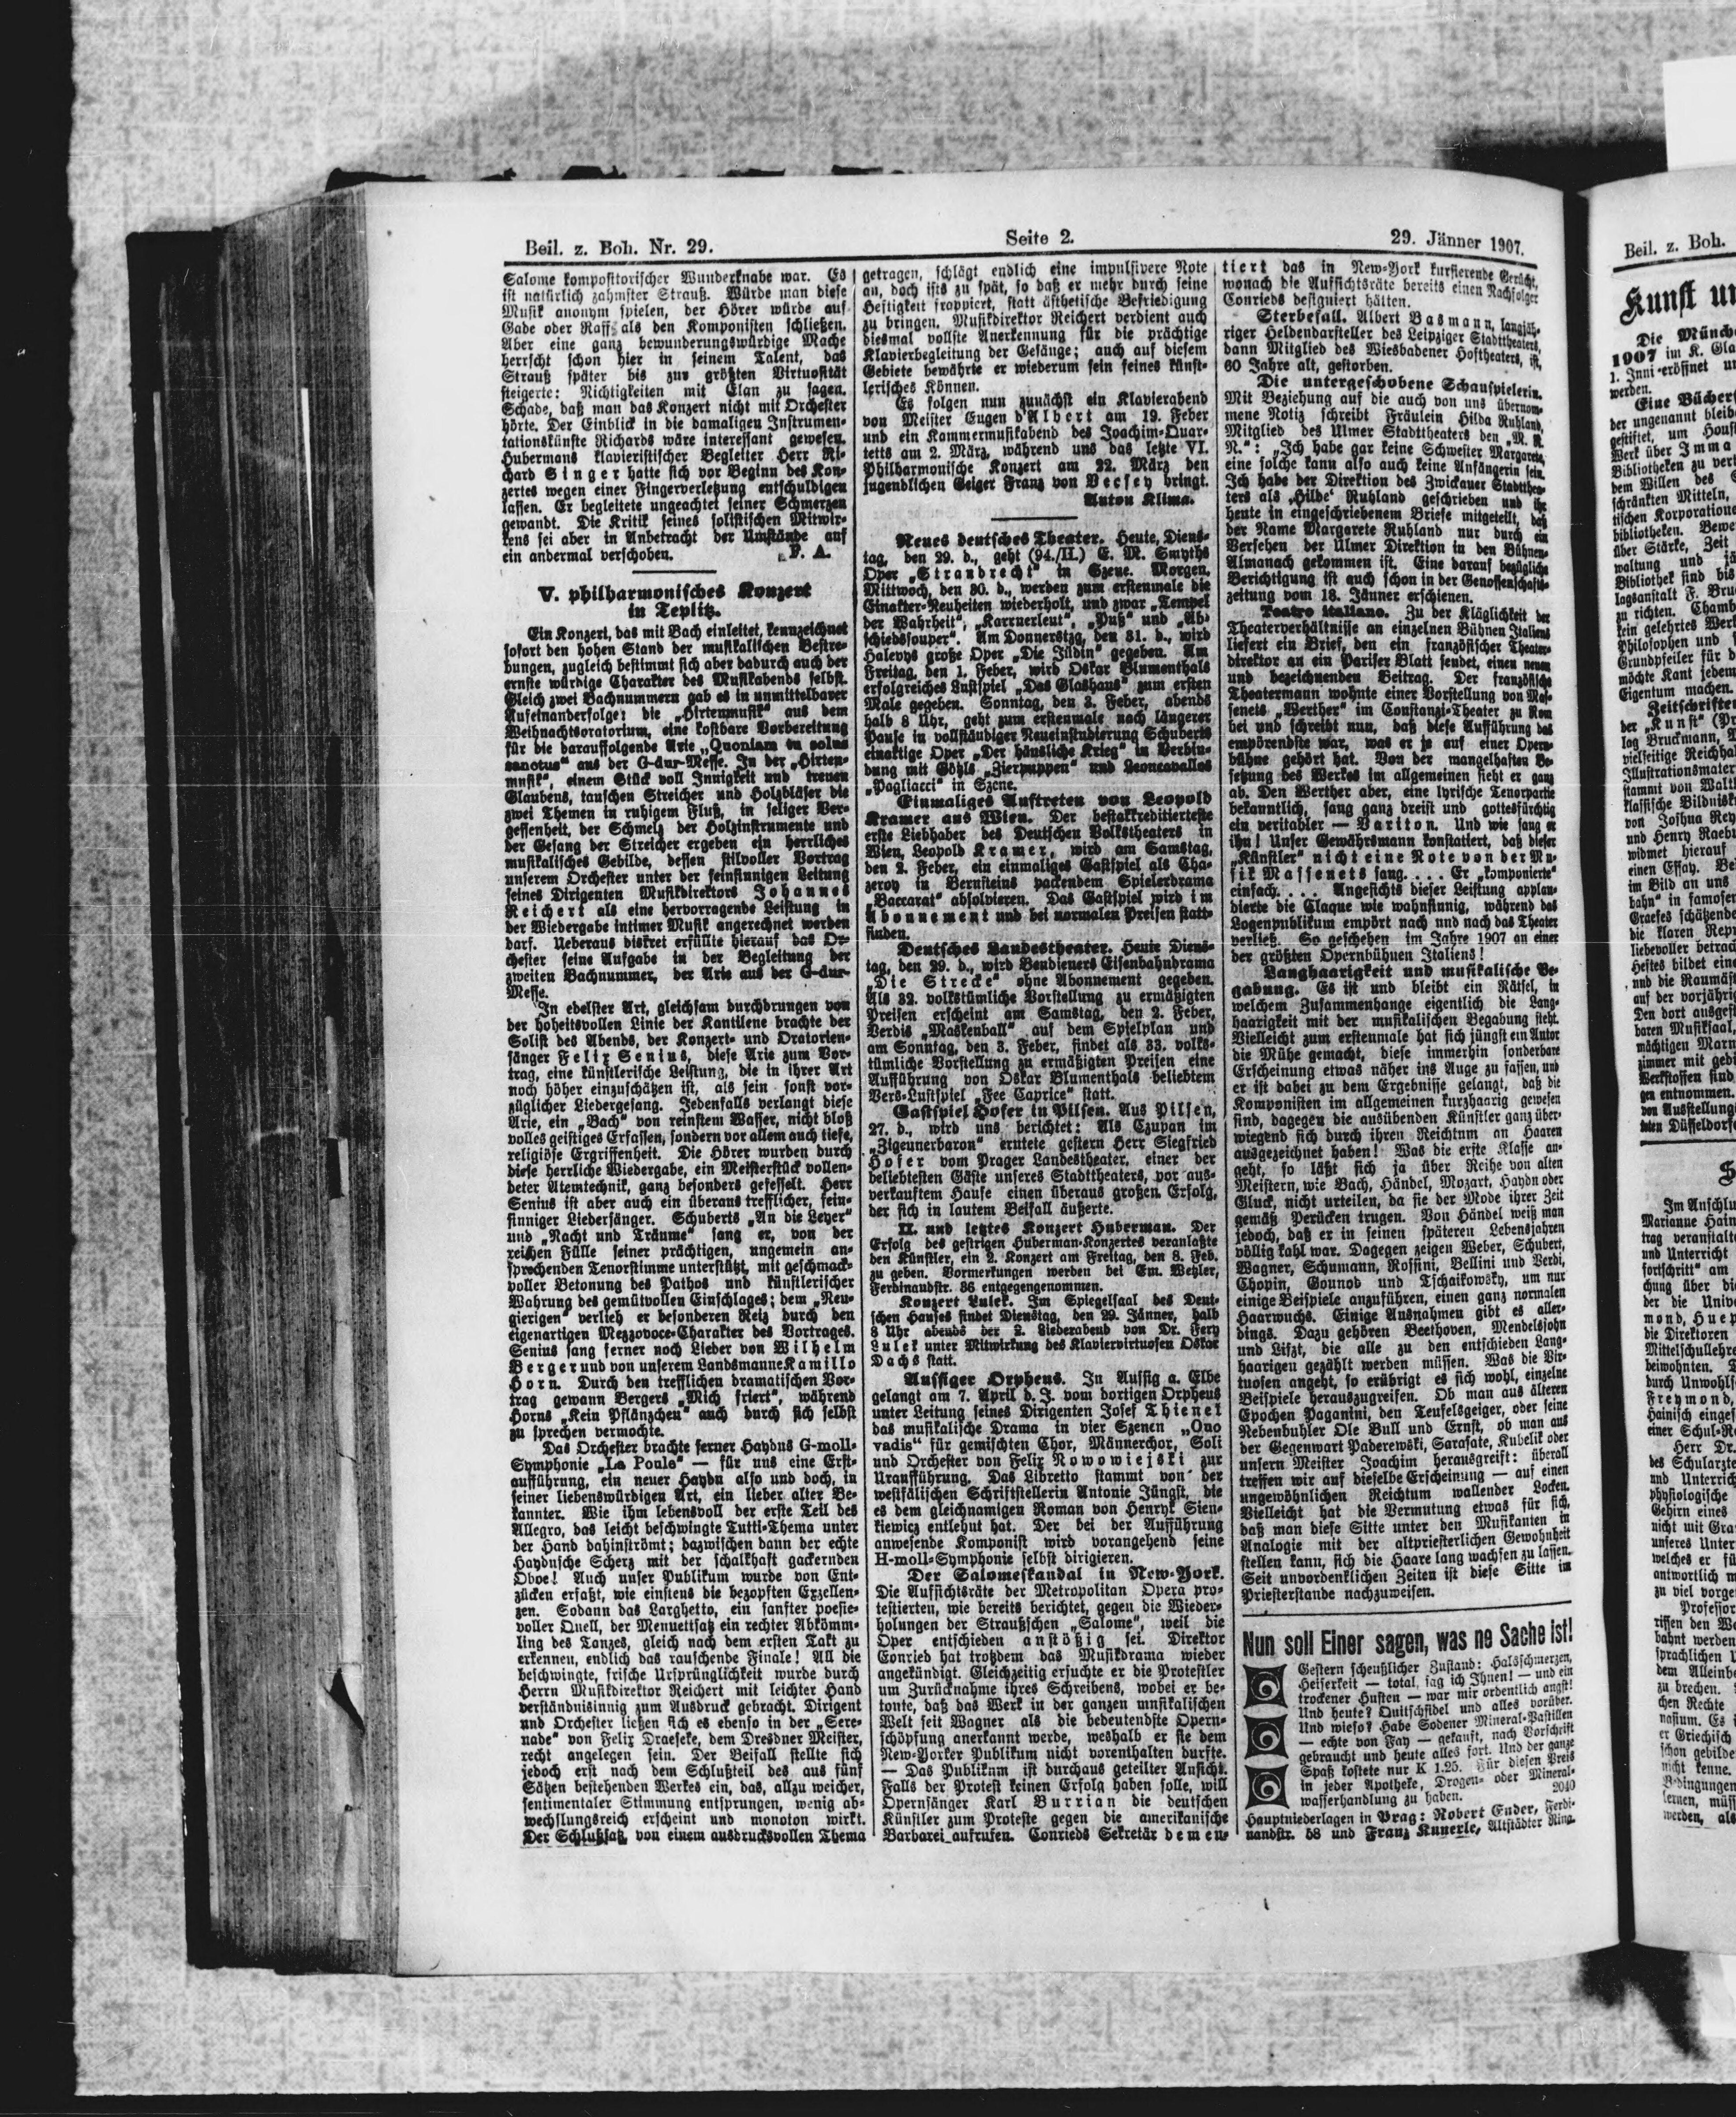 Beil. z. Boh. Nr. 29.
Seite 2.
29. Jänner 1907.
Salome kompositorischer Wunderknabe war. Es
ist natürlich zahmster Strauß. Würde man diese
Musik anonym spielen, der Hörer würde auf
Gade oder Raff als den Komponisten schließen.
Aber eine ganz bewunderungswürdige Mache
herrscht schon hier in seinem Talent, das
Strauß später bis zur größten Virtuosität
steigerte: Nichtigkeiten mit Elan zu sagen.
Schade, daß man das Konzert nicht mit Orchester
hörte. Der Einblick in die damaligen Instrumen-
tationskünste Richards wäre interessant gewesen.
Hubermans klavieristischer Begleiter Herr Ri-
chard Singer hatte sich vor Beginn des Kon-
zertes wegen einer Fingerverletzung entschuldigen
lassen. Er begleitete ungeachtet seiner Schmerzen
gewandt. Die Kritik seines solistischen Mitwir-
kens sei aber in Anbetracht der Umstände auf
ein andermal verschoben. F. A.
V. philharmonisches Konzert
in Teplitz.
Ein Konzert, das mit Bach einleitet, kennzeichnet
sofort den hohen Stand der musikalischen Bestre-
bungen, zugleich bestimmt sich aber dadurch auch der
ernste würdige Charakter des Musikabends selbst.
Gleich zwei Bachnummern gab es in unmittelbarer
Aufeinanderfolge: die „Hirtenmusik“ aus dem
Weihnachtsoratorium, eine kostbare Vorbereitung
für die darauffolgende Arie „Quoniam tu solus
sanctus“ aus der G-dur-Messe. In der „Hirten-
musik“, einem Stück voll Innigkeit und treuen
Glaubens, tauschen Streicher und Holzbläser die
zwei Themen in ruhigem Fluß, in seliger Ver-
gessenheit, der Schmelz der Holzinstrumente und
der Gesang der Streicher ergeben ein herrliches
musikalisches Gebilde, dessen stilvoller Vortrag
unserem Orchester unter der feinsinnigen Leitung
seines Dirigenten Musikdirektors Johannes
Reichert als eine hervorragende Leistung in
der Wiedergabe intimer Musik angerechnet werden
darf. Ueberaus diskret erfüllte hierauf das Or-
chester seine Aufgabe in der Begleitung der
zweiten Bachnummer, der Arie aus der G-dur-
Messe.
In edelster Art, gleichsam durchdrungen von
der hoheitsvollen Linie der Kantilene brachte der
Solist des Abends, der Konzert- und Oratorien-
sänger Felix Senius, diese Arie zum Vor-
trag, eine künstlerische Leistung, die in ihrer Art
noch höher einzuschätzen ist, als sein sonst vor-
züglicher Liedergesang. Jedenfalls verlangt diese
Arie, ein „Bach“ von reinstem Wasser, nicht bloß
volles geistiges Erfassen, sondern vor allem auch tiefe,
religiöse Ergriffenheit. Die Hörer wurden durch
diese herrliche Wiedergabe, ein Meisterstück vollen-
deter Atemtechnik, ganz besonders gefesselt. Herr
Senius ist aber auch ein überaus trefflicher, fein-
sinniger Liedersänger. Schuberts „An die Leyer“
und „Nacht und Träume“ sang er, von der
reichen Fülle seiner prächtigen, ungemein an-
sprechenden Tenorstimme unterstützt, mit geschmack-
voller Betonung des Pathos und künstlerischer
Wahrung des gemütvollen Einschlages; dem „Neu-
gierigen“ verlieh er besonderen Reiz durch den
eigenartigen Mezzovoce-Charakter des Vortrages.
Senius sang ferner noch Lieder von Wilhelm
Berger und von unserem Landsmanne Kamillo
Horn. Durch den trefflichen dramatischen Vor-
trag gewann Bergers „Mich friert“, während
Horns „Kein Pflänzchen“ auch durch sich selbst
zu sprechen vermochte.
Das Orchester brachte ferner Haydns G-moll-
Symphonie „La Poule“ — für uns eine Erst-
aufführung, ein neuer Haydn also und doch, in
seiner liebenswürdigen Art, ein lieber alter Be-
kannter. Wie ihm lebensvoll der erste Teil des
Allegro, das leicht beschwingte Tutti-Thema unter
der Hand dahinströmt; dazwischen dann der echte
Haydnsche Scherz mit der schalkhaft gackernden
Oboe! Auch unser Publikum wurde von Ent-
zücken erfaßt, wie einstens die bezopften Exzellen-
zen. Sodann das Larghetto, ein sanfter poesie-
voller Quell, der Menuettsatz ein rechter Abkömm-
ling des Tanzes, gleich nach dem ersten Takt zu
erkennen, endlich das rauschende Finale! All die
beschwingte, frische Ursprünglichkeit wurde durch
Herrn Musikdirektor Reichert mit leichter Hand
verständnisinnig zum Ausdruck gebracht. Dirigent
und Orchester ließen sich es ebenso in der „Sere-
nade“ von Felix Draeseke, dem Dresdner Meister,
recht angelegen sein. Der Beifall stellte sich
jedoch erst nach dem Schlußteil des aus fünf
Sätzen bestehenden Werkes ein, das, allzu weicher,
sentimentaler Stimmung entsprungen, wenig ab-
wechslungsreich erscheint und monoton wirkt.
Der Schlußsatz, von einem ausdrucksvollen Thema
getragen, schlägt endlich eine impulsivere Note
an, doch ists zu spät, so daß er mehr durch seine
Heftigkeit frappiert, statt ästhetische Befriedigung
zu bringen. Musikdirektor Reichert verdient auch
diesmal vollste Anerkennung für die prächtige
Klavierbegleitung der Gesänge; auch auf diesem
Gebiete bewährte er wiederum sein feines künst-
lerisches Können.
Es folgen nun zunächst ein Klavierabend
von Meister Eugen d'Albert am 19. Feber
und ein Kammermusikabend des Joachim-Quar-
tetts am 2. März, während uns das letzte VI.
Philharmonische Konzert am 22. März den
jugendlichen Geiger Franz von Vecsey bringt.
Anton Klima.
Neues deutsches Theater. Heute, Diens-
tag, den 29. d., geht (94./II.) E. M. Smyths
Oper „Strandrecht“ in Szene. Morgen,
Mittwoch, den 30. d., werden zum erstenmale die
Einakter-Neuheiten wiederholt, und zwar „Tempel
der Wahrheit“, „Karrnerleut“, „Puß“ und „Ab-
schiedssouper“. Am Donnerstzg, den 31. d., wird
Halevys große Oper „Die Jüdin“ gegeben. Am
Freitag, den 1. Feber, wird Oskar Blumenthals
erfolgreiches Lustspiel „Das Glashaus“ zum ersten
Male gegeben. Sonntag, den 3. Feber, abends
halb 8 Uhr, geht zum erstenmale nach längerer
Pause in vollständiger Neueinstudierung Schuberts
einaktige Oper „Der häusliche Krieg“ in Verbin-
dung mit Götzls „Zierpuppen“ und Leoncavallos
„Pagliacci“ in Szene.
Einmaliges Auftreten von Leopold
Kramer aus Wien. Der bestakkreditierteste
erste Liebhaber des Deutschen Volkstheaters in
Wien, Leopold Kramer, wird am Samstag,
den 2. Feber, ein einmaliges Gastspiel als Cha-
zeroy in Bernsteins packendem Spielerdrama
„Baccarat“ absolvieren. Das Gastspiel wird im
Abonnement und bei normalen Preisen statt-
finden.
Deutsches Landestheater. Heute Diens-
tag, den 29. d., wird Bendieners Eisenbahndrama
„Die Strecke“ ohne Abonnement gegeben.
Als 32. volkstümliche Vorstellung zu ermäßigten
Preisen erscheint am Samstag, den 2. Feber,
Verdis „Maskenball“ auf dem Spielplan und
am Sonntag, den 3. Feber, findet als 33. volks-
tümliche Vorstellung zu ermäßigten Preisen eine
Aufführung von Oskar Blumenthals beliebtem
Vers-Lustspiel „Fee Caprice“ statt.
Gastspiel Hofer in Pilsen. Aus Pilsen,
27. d., wird uns berichtet: Als Czupan im
„Zigeunerbaron“ erntete gestern Herr Siegfried
Hofer vom Prager Landestheater, einer der
beliebtesten Gäste unseres Stadttheaters, vor aus-
verkauftem Hause einen überaus großen Erfolg,
der sich in lautem Beifall äußerte.
II. und letztes Konzert Huberman. Der
Erfolg des gestrigen Huberman-Konzertes veranlaßte
den Künstler, ein 2. Konzert am Freitag, den 8. Feb.
zu geben. Vormerkungen werden bei Em. Wetzler,
Ferdinandstr. 36 entgegengenommen.
Konzert Lulek. Im Spiegelsaal des Deut-
schen Hauses findet Dienstag, den 29. Jänner, halb
8 Uhr abends der 2. Liederabend von Dr. Fery
Lulek unter Mitwirkung des Klaviervirtuosen Oskar
Dachs statt.
Aussiger Orpheus. In Aussig a. Elbe
gelangt am 7. April d. J. vom dortigen Orpheus
unter Leitung seines Dirigenten Josef Thienel
das musikalische Drama in vier Szenen „Quo
vadis“ für gemischten Chor, Männerchor, Soli
und Orchester von Felix Nowowiejski zur
Uraufführung. Das Libretto stammt von der
westfälischen Schriftstellerin Antonie Jüngst, die
es dem gleichnamigen Roman von Henryk Sien-
kiewicz entlehnt hat. Der bei der Aufführung
anwesende Komponist wird vorangehend seine
H-moll-Symphonie selbst dirigieren.
Der Salomeskandal in New-York.
Die Aufsichtsräte der Metropolitan Opera pro-
testierten, wie bereits berichtet, gegen die Wieder-
holungen der Straußschen „Salome“, weil die
Oper entschieden anstößig sei. Direktor
Conried hat trotzdem das Musikdrama wieder
angekündigt. Gleichzeitig ersuchte er die Protestler
um Zurücknahme ihres Schreibens, wobei er be-
tonte, daß das Werk in der ganzen musikalischen
Welt seit Wagner als die bedeutendste Opern-
schöpfung anerkannt werde, weshalb er sie dem
New-Yorker Publikum nicht vorenthalten durfte.
— Das Publikum ist durchaus geteilter Ansicht.
Falls der Protest keinen Erfolg haben solle, will
Opernsänger Karl Burrian die deutschen
Künstler zum Proteste gegen die amerikanische
Barbarei aufrufen. Conrieds Sekretär demen-
tiert das in New-York kursierende Gerücht,
wonach die Aufsichtsräte bereits einen Nachfolger
Conrieds designiert hätten.
Sterbefall. Albert Basmann, langjäh-
riger Heldendarsteller des Leipziger Stadttheaters,
dann Mitglied des Wiesbadener Hoftheaters, ist,
60 Jahre alt, gestorben.
Die untergeschobene Schauspielerin.
Mit Beziehung auf die auch von uns übernom-
mene Notiz schreibt Fräulein Hilda Ruhland,
Mitglied des Ulmer Stadttheaters den „M. N.
N.“: „Ich habe gar keine Schwester Margarete,
eine solche kann also auch keine Anfängerin sein.
Ich habe der Direktion des Zwickauer Stadtthea-
ters als ‚Hilde‘ Ruhland geschrieben und ihr
heute in eingeschriebenem Briefe mitgeteilt, daß
der Name Margarete Ruhland nur durch ein
Versehen der Ulmer Direktion in den Bühnen-
Almanach gekommen ist. Eine darauf bezügliche
Berichtigung ist auch schon in der Genossenschafts-
zeitung vom 18. Jänner erschienen.
Teatro italiano. Zu der Kläglichkeit der
Theaterverhältnisse an einzelnen Bühnen Italiens
liefert ein Brief, den ein französischer Theater-
direktor an ein Pariser Blatt sendet, einen neuen
und bezeichnenden Beitrag. Der französische
Theatermann wohnte einer Vorstellung von Mas-
senets „Werther“ im Constanzi-Theater zu Rom
bei und schreibt nun, daß diese Aufführung das
empörendste war, was er je auf einer Opern-
bühne gehört hat. Von der mangelhaften Be-
setzung des Werkes im allgemeinen sieht er ganz
ab. Den Werther aber, eine lyrische Tenorpartie
bekanntlich, sang ganz dreist und gottesfürchtig
ein veritabler — Bariton. Und wie sang er
ihn! Unser Gewährsmann konstatiert, daß dieser
„Künstler“ nicht eine Note von der Mu-
sik Massenets sang. . . . Er „komponierte“
einfach. . . . Angesichts dieser Leistung applau-
dierte die Claque wie wahnsinnig, während das
Logenpublikum empört nach und nach das Theater
verließ. So geschehen im Jahre 1907 an einer
der größten Opernbühnen Italiens!
Langhaarigkeit und musikalische Be-
gabung. Es ist und bleibt ein Rätsel, in
welchem Zusammenhange eigentlich die Lang-
haarigkeit mit der musikalischen Begabung steht.
Vielleicht zum erstenmale hat sich jüngst ein Autor
die Mühe gemacht, diese immerhin sonderbare
Erscheinung etwas näher ins Auge zu fassen, und
er ist dabei zu dem Ergebnisse gelangt, daß die
Komponisten im allgemeinen kurzhaarig gewesen
sind, dagegen die ausübenden Künstler ganz über-
wiegend sich durch ihren Reichtum an Haaren
ausgezeichnet haben! Was die erste Klasse an-
geht, so läßt sich ja über Reihe von alten
Meistern, wie Bach, Händel, Mozart, Haydn oder
Gluck, nicht urteilen, da sie der Mode ihrer Zeit
gemäß Perücken trugen. Von Händel weiß man
jedoch, daß er in seinen späteren Lebensjahren
völlig kahl war. Dagegen zeigen Weber, Schubert,
Wagner, Schumann, Rossini, Bellini und Verdi,
Chopin, Gounod und Tschaikowsky, um nur
einige Beispiele anzuführen, einen ganz normalen
Haarwuchs. Einige Ausnahmen gibt es aller-
dings. Dazu gehören Beethoven, Mendelsjohn
und Liszt, die alle zu den entschieden Lang-
haarigen gezählt werden müssen. Was die Vir-
tuosen angeht, so erübrigt es sich wohl, einzelne
Beispiele herauszugreifen. Ob man aus älteren
Epochen Paganini, den Teufelsgeiger, oder seine
Nebenbuhler Ole Bull und Ernst, ob man aus
der Gegenwart Paderewski, Sarasate, Kubelik oder
unsern Meister Joachim herausgreift: überall
treffen wir auf dieselbe Erscheinung — auf einen
ungewöhnlichen Reichtum wallender Locken.
Vielleicht hat die Vermutung etwas für sich,
daß man diese Sitte unter den Musikanten in
Analogie mit der altpriesterlichen Gewohnheit
stellen kann, sich die Haare lang wachsen zu lassen.
Seit unvordenklichen Zeiten ist diese Sitte im
Priesterstande nachzuweisen.
Nun soll Einer sagen, was ne Sache ist!
Gestern scheußlicher Zustand: Halsschmerzen,
Heiserkeit — total, sag ich Ihnen! — und ein
trockener Husten — war mir ordentlich angst!
Und heute? Quitschfidel und alles vorüber.
Und wieso? Habe Sodener Mineral-Pastillen
— echte von Fay — gekauft, nach Vorschrift
gebraucht und heute alles fort. Und der ganze
Spaß kostete nur K 1.25. Für diesen Preis
in jeder Apotheke, Drogen- oder Mineral-
wasserhandlung zu haben. 2040
Hauptniederlagen in Prag: Robert Ender, Ferdi-
nandstr. 58 und Franz Kunerle, Altstädter Ring.
Beil. z. Boh.
Kunst
Die
1907 im K.
1. Juni eröffnet
werden.
Eine
der ungenannt
gestiftet, um
Werk über
Bibliotheken zu
dem Willen des
schränkten Mitteln,
tischen
bibliotheken.
über Stärke, Zeit
waltung und
Bibliothek sind bis
lagsanstalt F.
zu richten.
kein gelehrtes
Philosophen und
Grundpfeiler für
möchte Kant jedem
Eigentum machen.
der „Kunst“
Bruckmann,
vielseitige
stammt von
von Joshua
und Henry
widmet hierauf
einen Essay.
im Bild an uns
bahn“ in
die klaren
liebevoller
Heftes bildet
und die
auf der
Den dort
baren Musiksaal,
mächtigen
zimmer mit
Werkstoffen sind
gen entnommen.
von
Marianne
trag
und Unterricht
fortschritt“ am
chung über
der die
die Direktoren
beiwohnten.
durch
Freymond,
Hainisch
einer
Herr Dr.
und
physiologische
Gehirn eines
nicht mit
unseres
welches er
antwortlich
zu viel
rissen den
bahnt werden
sprachlichen
dem
zu brechen.
chen Rechte
er Griechisch
schon
nicht kenne.
Bedingungen
lernen,
werden, als